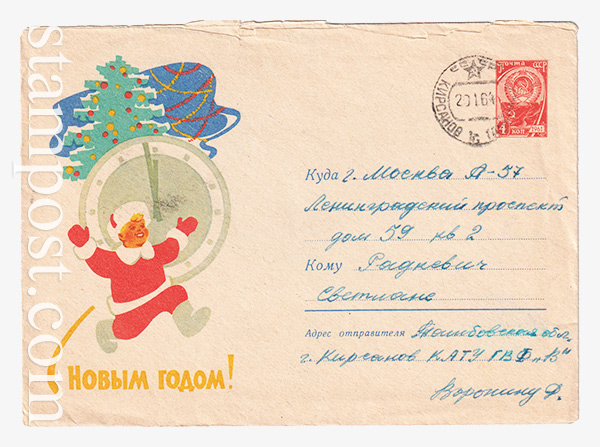 С НОВЫМ ГОДОМ!
ПОЧТА СССР
4 КОП
КИРСАНОВ
20164
Куда г. Москва А-57
Ленинградский проспект
дом 59 кв 2
Кому Радкевич
Светлане
Адрес отправителя Тамбовская обл.
г. Кирсанов КАТУ ГВФ „В"
Воронину Ф.
stampost.com